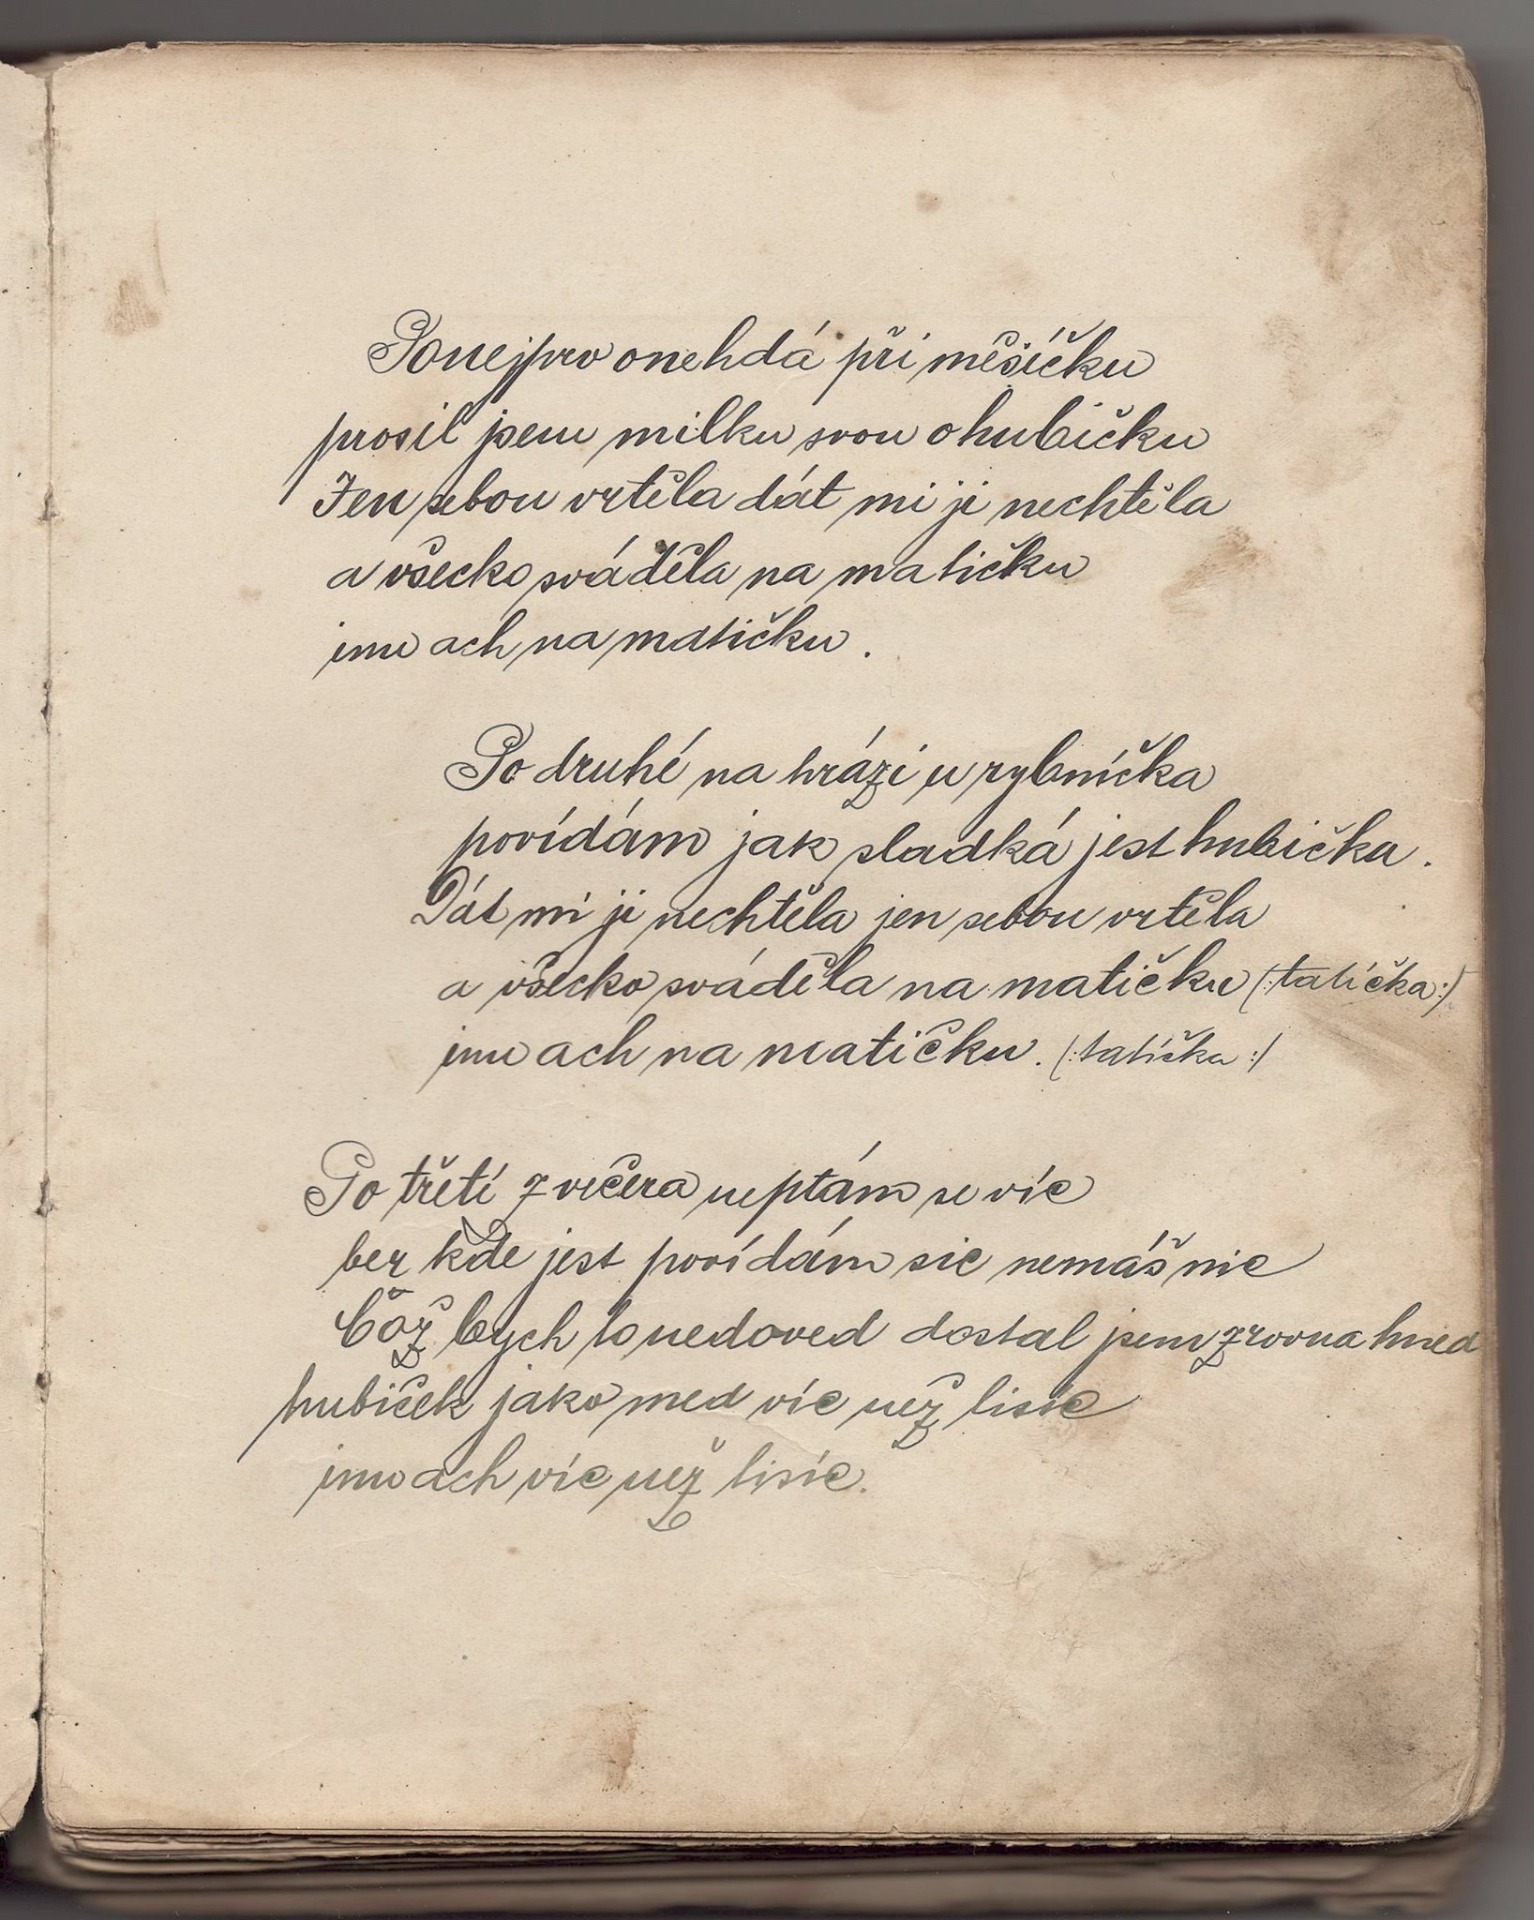 Ponejprv onehdá při měsíčku
prosil jsem milku svou o hubičku
Jen sebou vrtěla dát mi ji nechtěla
a všecko sváděla na matičku
jmu ach na matičku.
Po druhé na hrázi u rybníčka
povídám jak sladká jest hubička.
Dát mi ji nechtěla jen sebou vrtěla
a všecko sváděla na matičku (:tatíčka:)
jmu ach na matičku. (:tatíčka:)
Po třetí z večera neptám se víc
ber kde jest povídám sic nemáš nic
Což bych to nedoved dostal jsem zrovna hned
hubiček jako med víc než lisíc
jmu ach víc než lisíc.